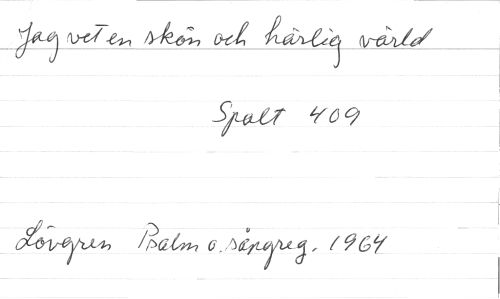 Jag vet en skön och härlig värld
Spalt 409
Lövgren Psalm o. sångreg. 1964